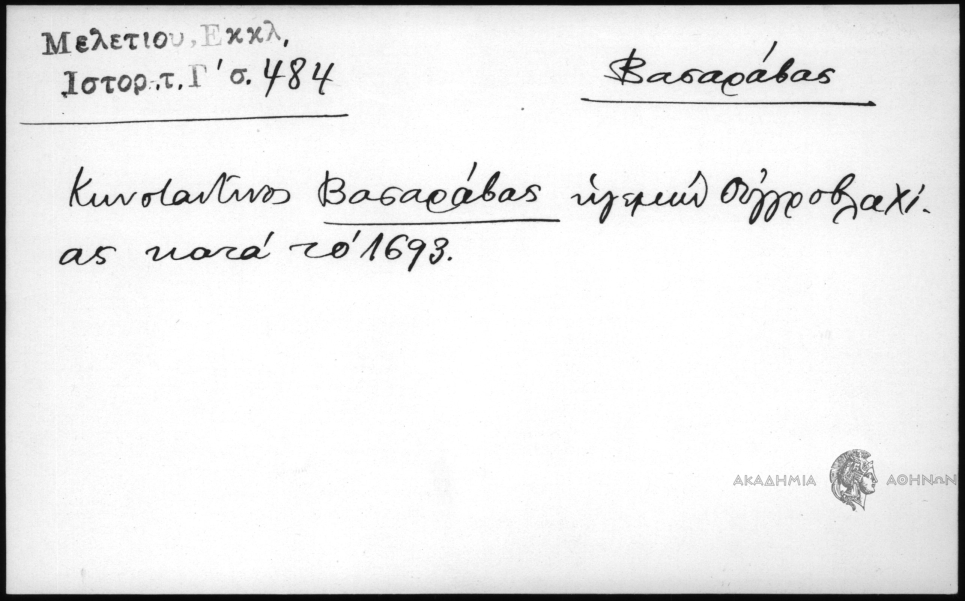 Μελετιου, Εκκλ,
Ιστορ.τ.Γ' σ. 484
Βασαράβας
Κωνσταντινος Βασαράβας ἡγεμὼν Οὑγγροβλαχί-
ας κατά τό 1693.
ΑΚΑΔΗΜΙΑ ΑΘΗΝΩΝ